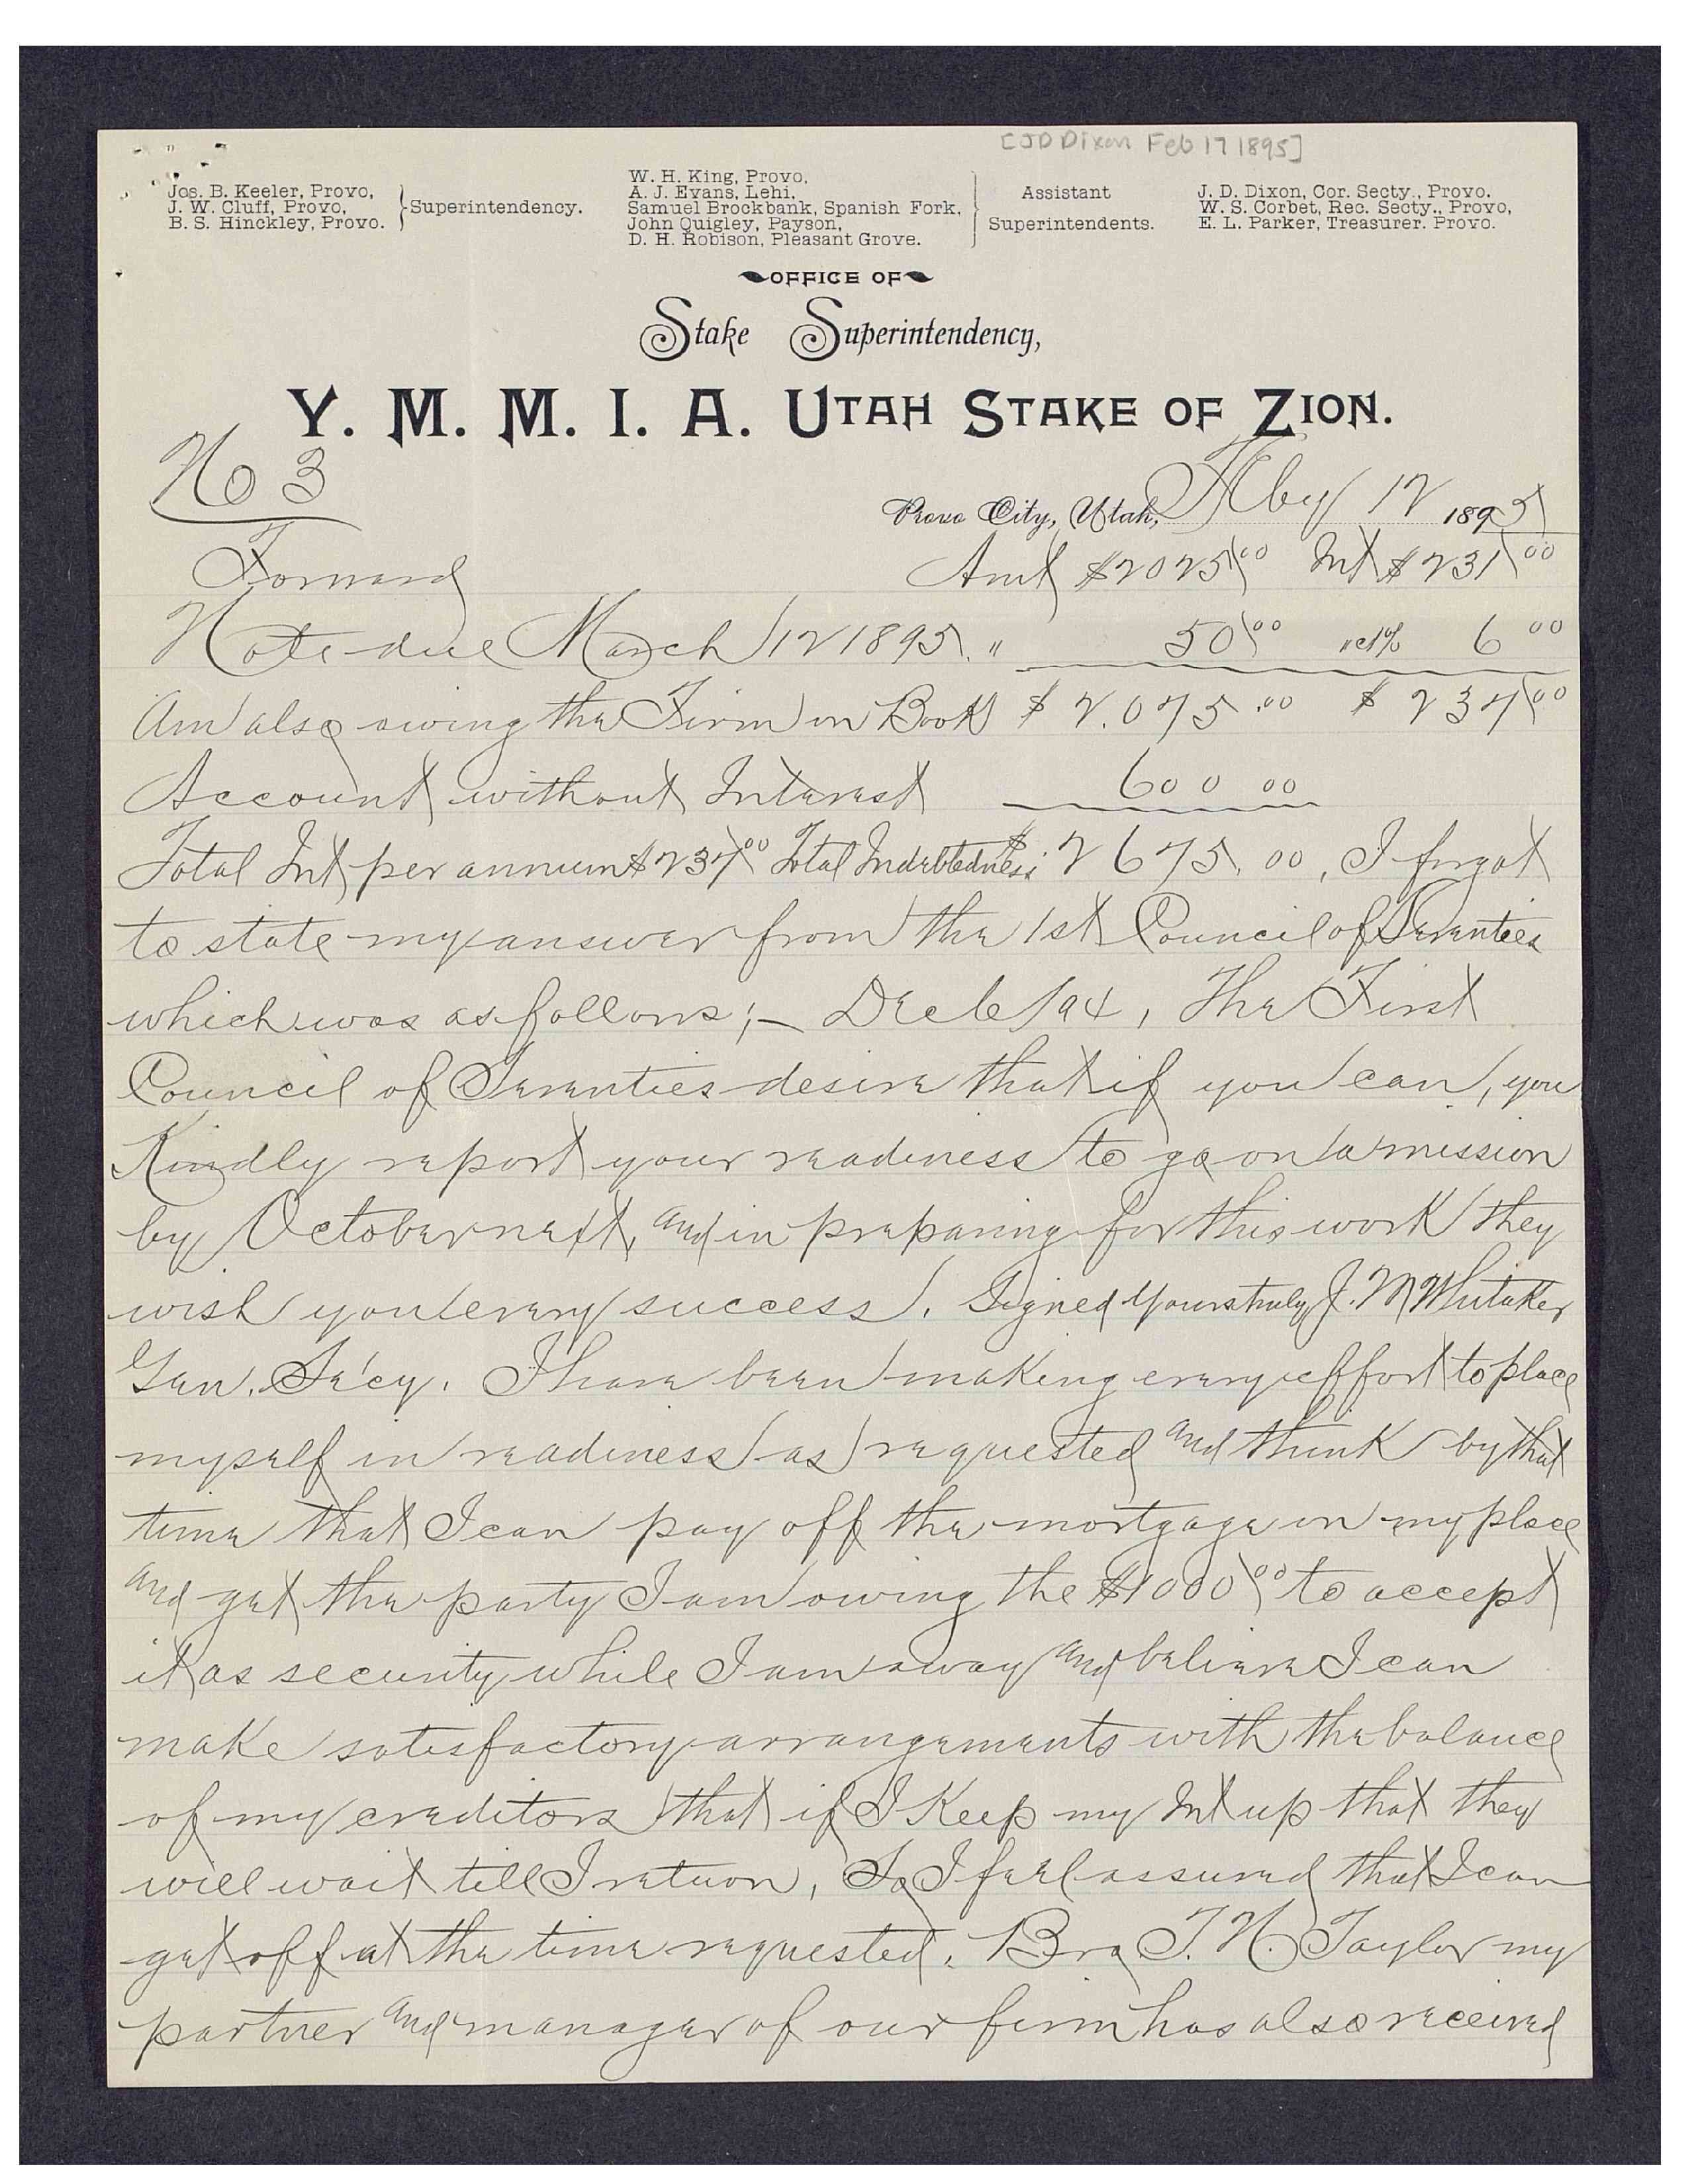 [JD Dixon Feb 17 1895]
Jos. B. Keeler, Provo,
J. W. Cluff, Provo,
B. S. Hinckley, Provo.
Superintendency.
W. H. King, Provo,
A. J. Evans, Lehi,
Samuel Brockbank, Spanish Fork,
John Quigley, Payson,
D. H. Robison, Pleasant Grove.
Assistant
Superintendents.
J. D. Dixon, Cor. Secty., Provo.
W. S. Corbet, Rec. Secty., Provo,
E. L. Parker, Treasurer. Provo.
OFFICE OF
Stake Superintendency,
Y. M. M. I. A. UTAH STAKE OF ZION.
No 3
Provo City, Utah, Feby 17 1895
Forward Amt $2025.00 Int $231.00
Note due March 12 1895. " 50.00 " at % 6 00
Am also owing the Firm on Book $ 2.075.00 $ 237.00
Account without Interest 600 00
Total Int per annum $237.00 Total Indebtedness $ 2675.00, I forgot
to state my answer from the 1st Council of Seventies
which was as follows;— Dec 6/94, The First
Council of Seventies desire that if you can, you
Kindly report your readiness to go on a mission
by October next, and in preparing for this work they
wish you every success. Signed Yours truly J. M Whitaker
Gen. Se'cy. I have been making every effort to place
myself in readiness as requested and think by that
time that I can pay off the mortgage on my place
and get the party I am owing the $1000.00 to accept
it as security while I am away and believe I can
make satisfactory arrangements with the balance
of my creditors that if I Keep my Int up that they
will wait till I return, So I feel assured that I can
get off at the time requested. Bro T. N. Taylor my
partner and manager of our firm has also received